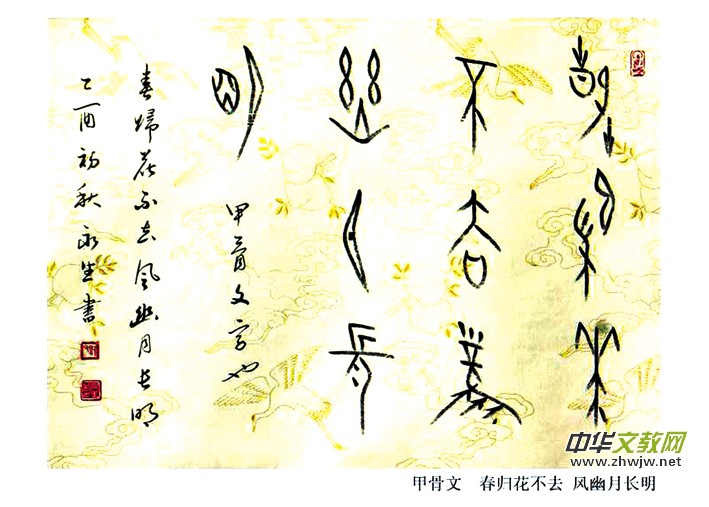 春歸花
不去風
幽月長
明
甲骨文字也
春歸花不去風幽月長明
乙酉初秋永生書
中华文教网
www.zhwjw.net
甲骨文 春归花不去 风幽月长明